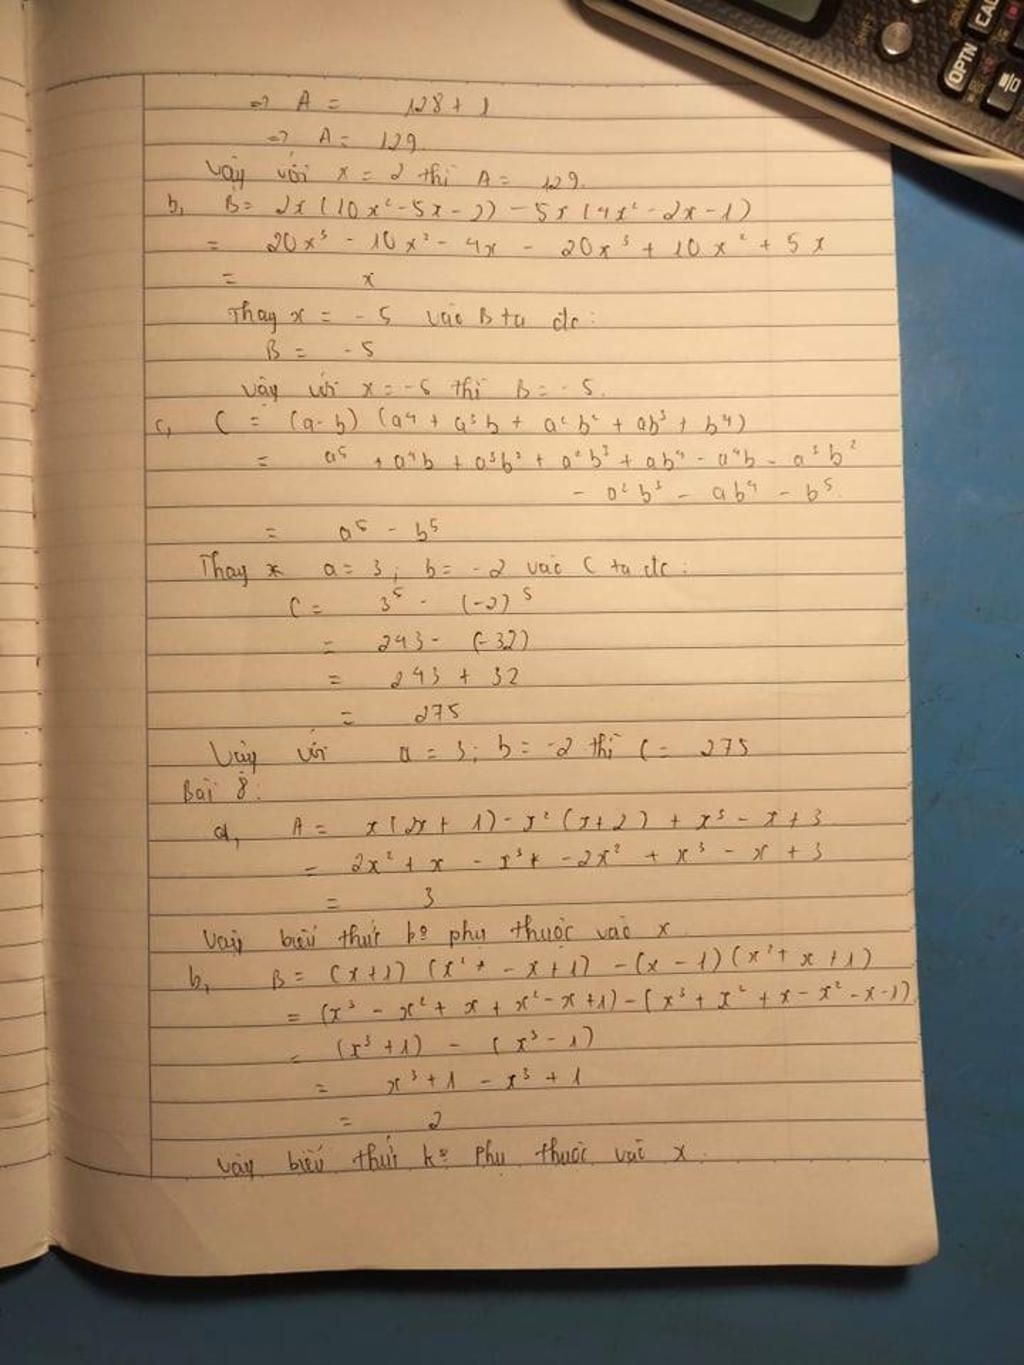 OPTN
CAL
=> A = 128 + 1
=> A = 129
Vậy với x = 2 thì A = 129.
b, B = 2x (10x² - 5x - 2) - 5x (4x² - 2x - 1)
= 20x³ - 10x² - 4x - 20x³ + 10x² + 5x
= x
Thay x = -5 vào B ta đc:
B = -5
Vậy với x = -5 thì B = -5.
c, C = (a-b) (a⁴ + a³b + a²b² + ab³ + b⁴)
= a⁵ + a⁴b + a³b² + a²b³ + ab⁴ - a⁴b - a³b²
- a²b³ - ab⁴ - b⁵.
= a⁵ - b⁵
Thay x a = 3; b = -2 vào C ta đc:
C = 3⁵ - (-2)⁵
= 243 - (-32)
= 243 + 32
= 275
Vậy với a = 3; b = -2 thì C = 275
Bài 8:
a, A = x(2x + 1) - x² (x+2) + x³ - x + 3
= 2x² + x - x³ + - 2x² + x³ - x + 3
= 3
Vậy biểu thức ko phụ thuộc vào x
b, B = (x+1) (x² + - x + 1) - (x - 1) (x² + x + 1)
= (x³ - x² + x + x² - x + 1) - (x³ + x² + x - x² - x - 1)
= (x³ + 1) - (x³ - 1)
= x³ + 1 - x³ + 1
= 2
Vậy biểu thức ko phụ thuộc vào x.